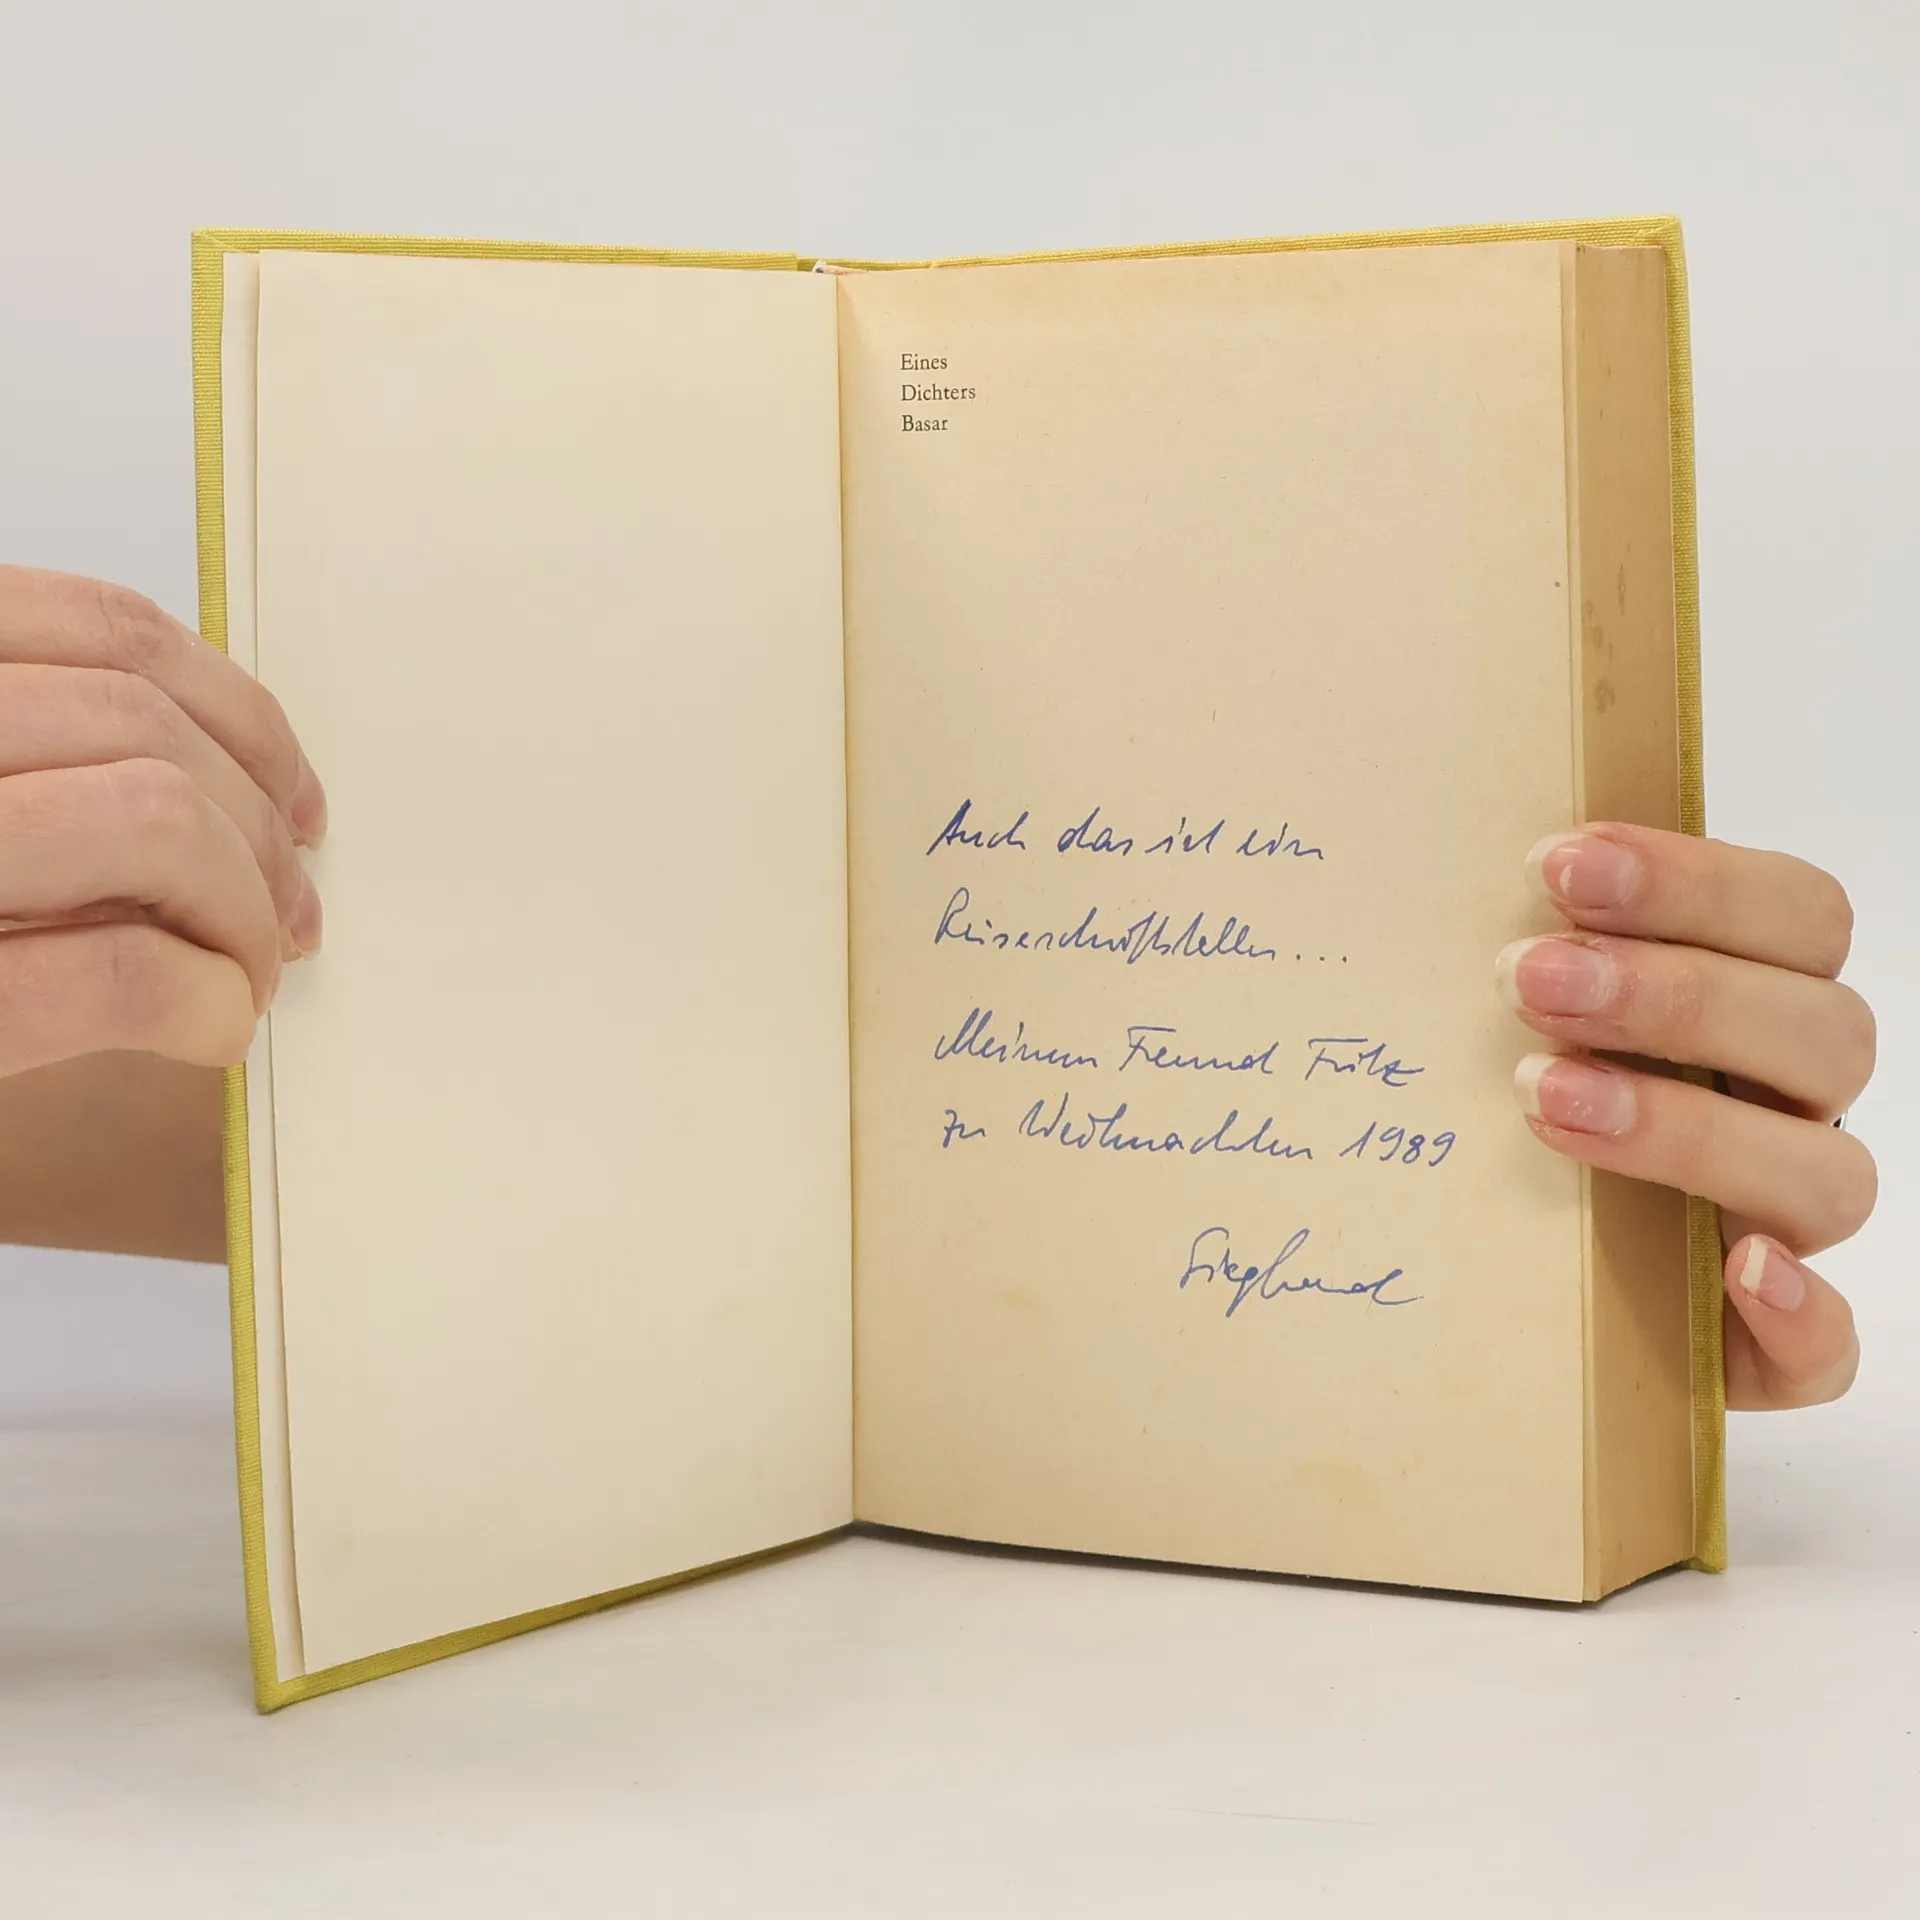 Eines
Dichters
Basar
Auch das ist ein
Reiseschriftsteller...
Meinem Freund Fritz
zu Weihnachten 1989